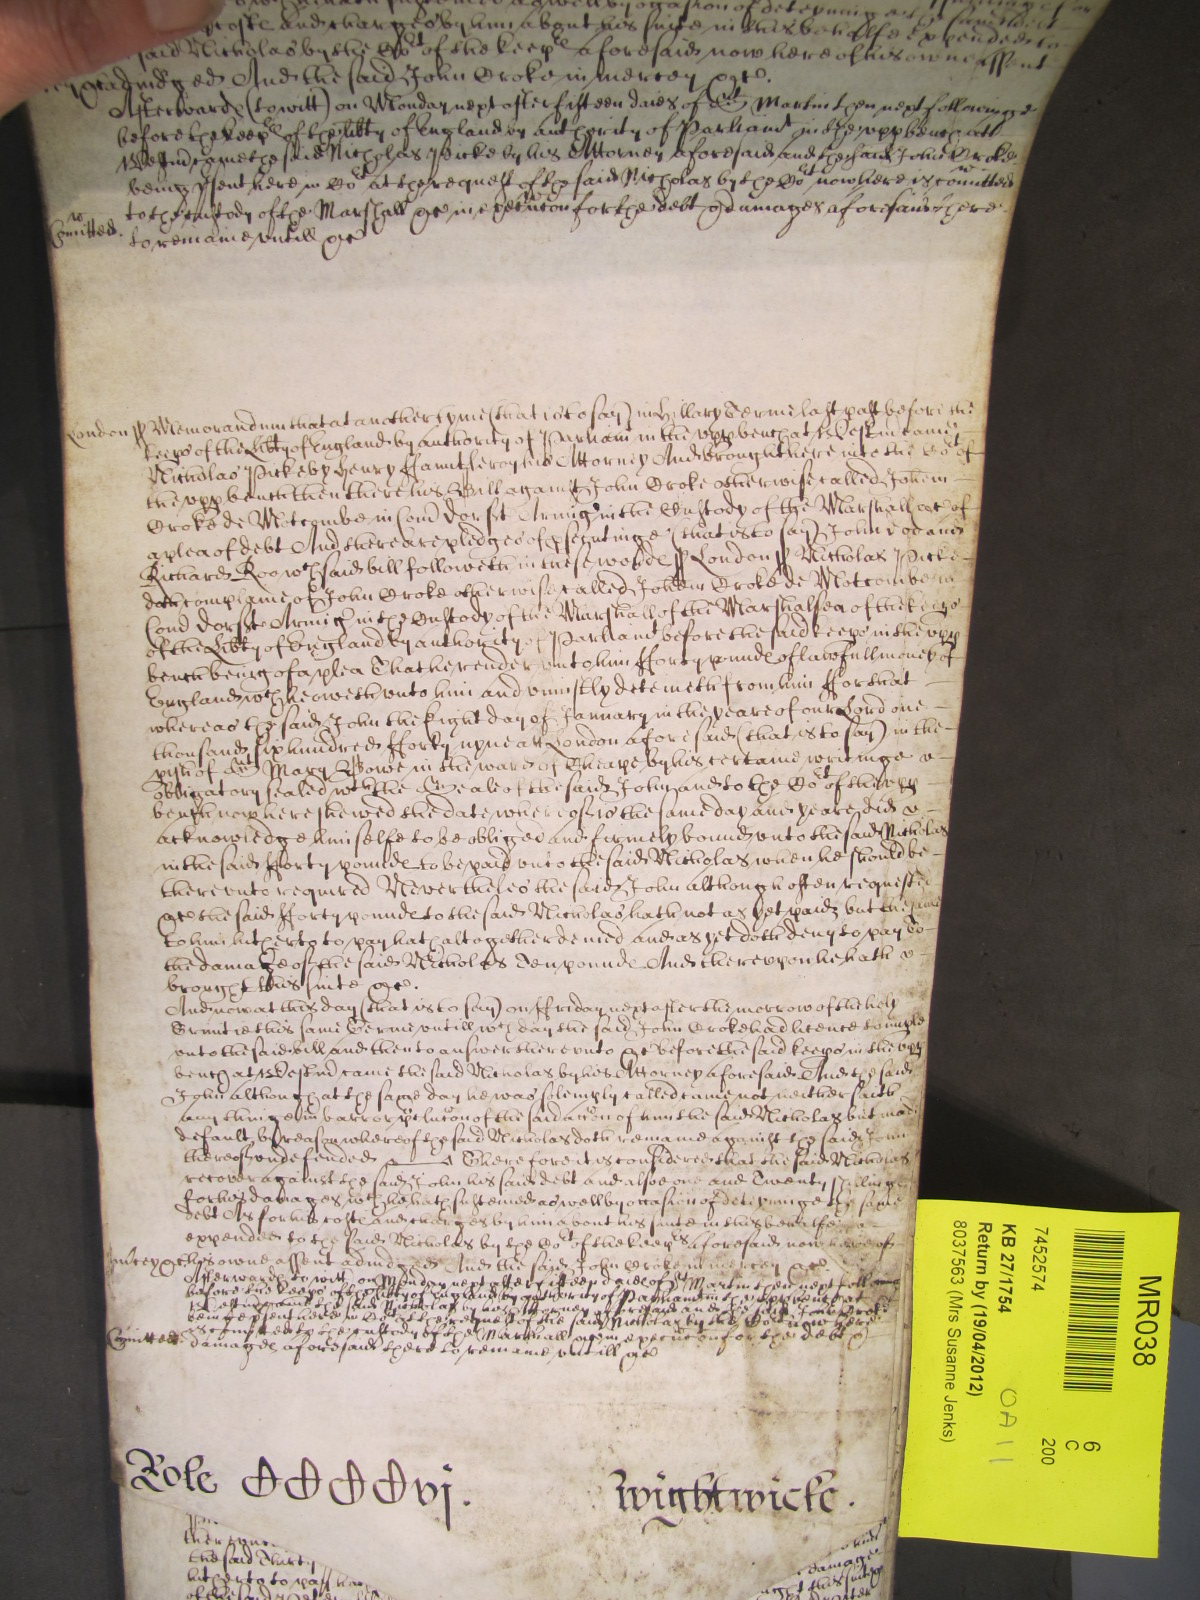 said Nicholas by the Cort of the keeps aforesaid now here of his owne assent
adiudged And the said John Croke in mercey &c.
Afterwards (to witt) on Monday next after fifteen daies of St Martin then next followinge
before the keeps of the libty of England by authority of Parliamt in the upp bench att
Westmr came the said Nicholas Picke by his Attorney aforesaid and the said John Croke
being psent here in Cort at the request of the said Nicholas by the Cort now here is comitted
Comitted. to the custody of the Marshall &c in execucon for the debt & damages aforesaid there
to remaine untill &c
London ss Memorandum that at another tyme (that is to say) in Hillary Terme last past before the
keeps of the Libty of England by authority of Parliam in the upp bench at Westm came
Nicholas Picke by Henry Fauntleroy his Attorney And brought here into the Cort of
the upp bench then there his Bill against John Croke otherwise called Johem
Croke de Motcombe in Com Dorset Armig in the Custody of the Marshall &c of
a plea of debt And there are pledges of psecutinge (that is to say) John Doo and
Richard Roo wch said bill followeth in these words ss London ss Nicholas Picke
doth complaine of John Croke otherwise called Johem Croke de Motcombe in
Com Dorset Armig in the Custody of the Marshall of the Marshalsea of the keeps
of the Libty of England by authority of Parliamt before the said keeps in the upp
bench being of a plea That he render unto him fforty pounds of lawfull money of
England wch he oweth unto him and uniustly deteineth from him ffor that
whereas the said John the Eight day of January in the yeare of our Lord one
thousand six hundred fforty nyne att London aforesaid (that is to say) in the
pish of St Mary Bowe in the ward of Cheape by his certaine writinge
obligatory sealed wth the Seale of the said John and to the Cort of the upp
bench now here shewed the date whereof is the same day and yeare did
acknowledge himselfe to be obliged and firmely bound unto the said Nicholas
in the said fforty pounds to be paid unto the said Nicholas when he should be
thereunto required Neverthelesse the said John although often requested
&c the said fforty pounds to the said Nicholas hath not as yet paid but the same
to him hitherto to pay hath altogether denied and as yet doth deny to pay to
the damage of the said Nicholas Ten pounds And thereupon he hath
brought this suite &c.
And now at this day (that is to say) on ffriday next after the morrow of the holy
Trinitie this same Terme untill wch day the said John Croke had licence to imple
unto the said bill and then to answer thereunto &c before the said keeps in the upp
bench at Westmr came the said Nicholas by his Attorney aforesaid And the said
John although at the same day he was solemply called came not neither saith
any thinge in barr or pclucon of the said accon of him the said Nicholas but made
default by reason whereof the said Nicholas doth remaine against the said John
thereof undefended Therefore it is considered that the said Nicholas
recover against the said John his said debt and alsoe one and Twenty shillings
for his damages wch he hath susteined as well by occasion of deteyninge the same
debt As for his costs and charges by him about his suite in this behalfe
expended to the said Nicholas by the Cort of the keeps aforesaid now here of
mercy &c his owne assent adiudged And the said John Croke in mercy &c
Afterwards to witt on Monday next after fifteen daies of St Martin then next following
before the keeps of the libty of England by authority of Parliamt in the upp bench at
Westmr came the said Nicholas by his Attorney aforesaid and the said John Croke
being psent here in Cort at the request of the said Nicholas by the Cort now here
Comitted is comitted to the custody of the Marshall &c in execucon for the debt &
damages aforesaid there to remaine untill &c
Role CCCCvj. Wightwicke.
the said Thirty
hitherto to pay
damage
this suite
MR038
7452574
6
C
200
KB 27/1784
OA 11
Return by (19/04/2012)
8037563 (Mrs Susanne Jenks)